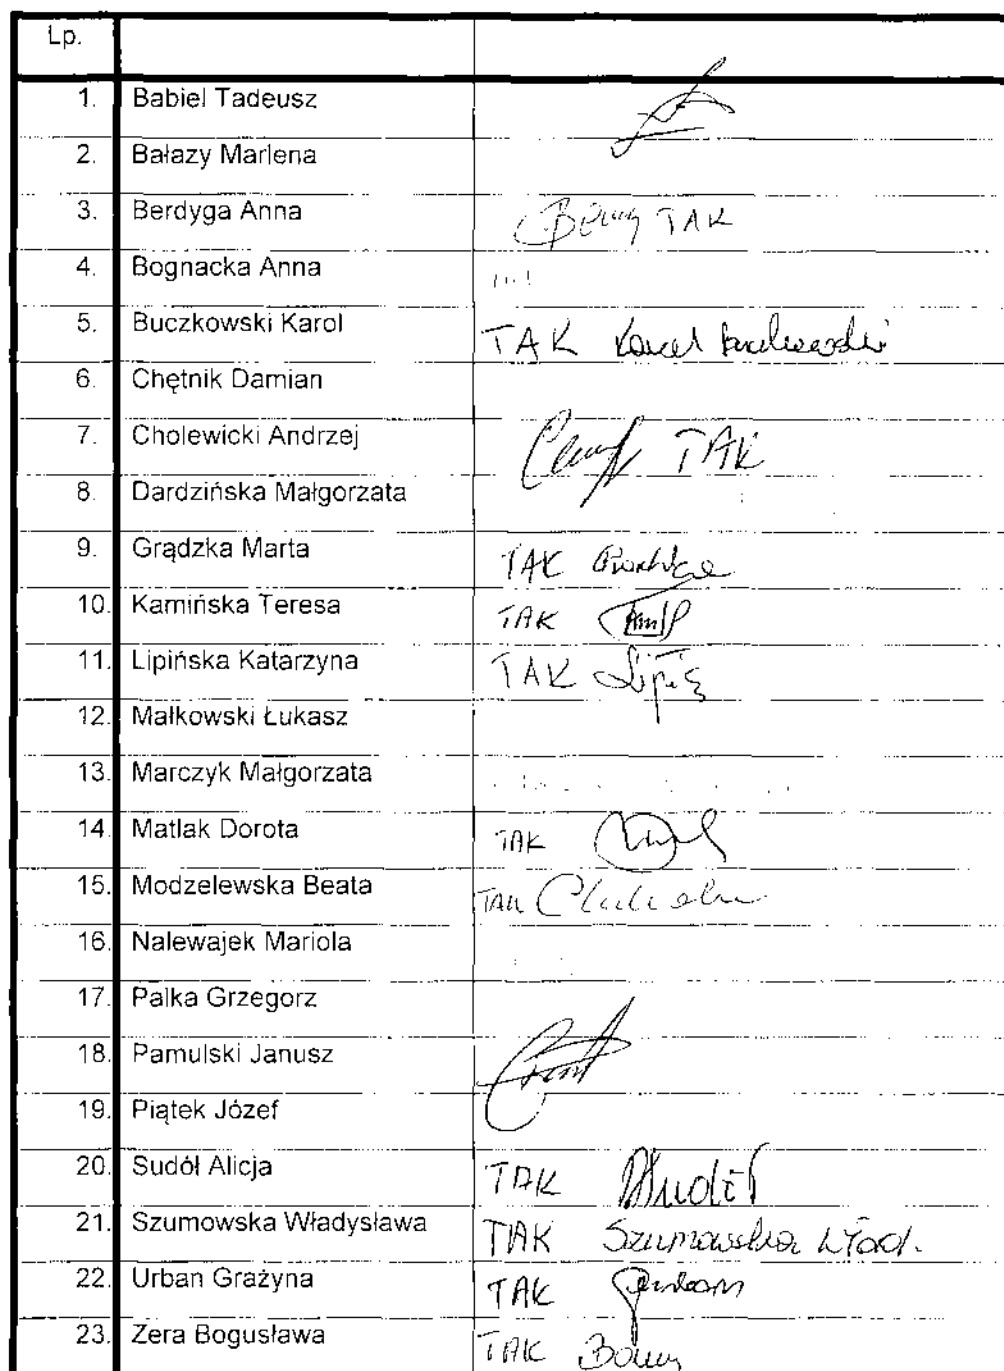 Lp.
1. Babiel Tadeusz
2. Bałazy Marlena
3. Berdyga Anna TAK
4. Bognacka Anna
5. Buczkowski Karol TAK Karol Buczkowski
6. Chętnik Damian
7. Cholewicki Andrzej TAK
8. Dardzińska Małgorzata
9. Grądzka Marta TAK
10. Kamińska Teresa TAK
11. Lipińska Katarzyna TAK
12. Małkowski Łukasz
13. Marczyk Małgorzata
14. Matlak Dorota TAK
15. Modzelewska Beata TAK
16. Nalewajek Mariola
17. Palka Grzegorz
18. Pamulski Janusz
19. Piątek Józef
20. Sudół Alicja TAK
21. Szumowska Władysława TAK Szumowska Wład.
22. Urban Grażyna TAK
23. Zera Bogusława TAK